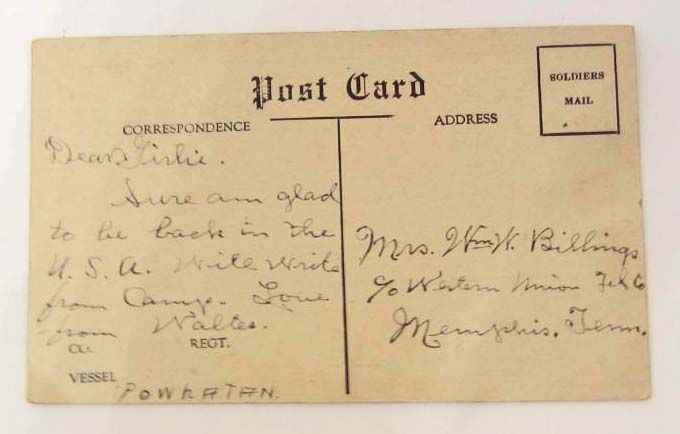 Post Card
SOLDIERS
MAIL
CORRESPONDENCE
ADDRESS
Dear Girlie.
Sure am glad
to be back in the
U.S.A. Will write
from Camp. Love
from Walter.
REGT.
VESSEL
POWHATAN.
Mrs. Wm W. Billings
c/o Western Union Tel Co
Memphis. Tenn.